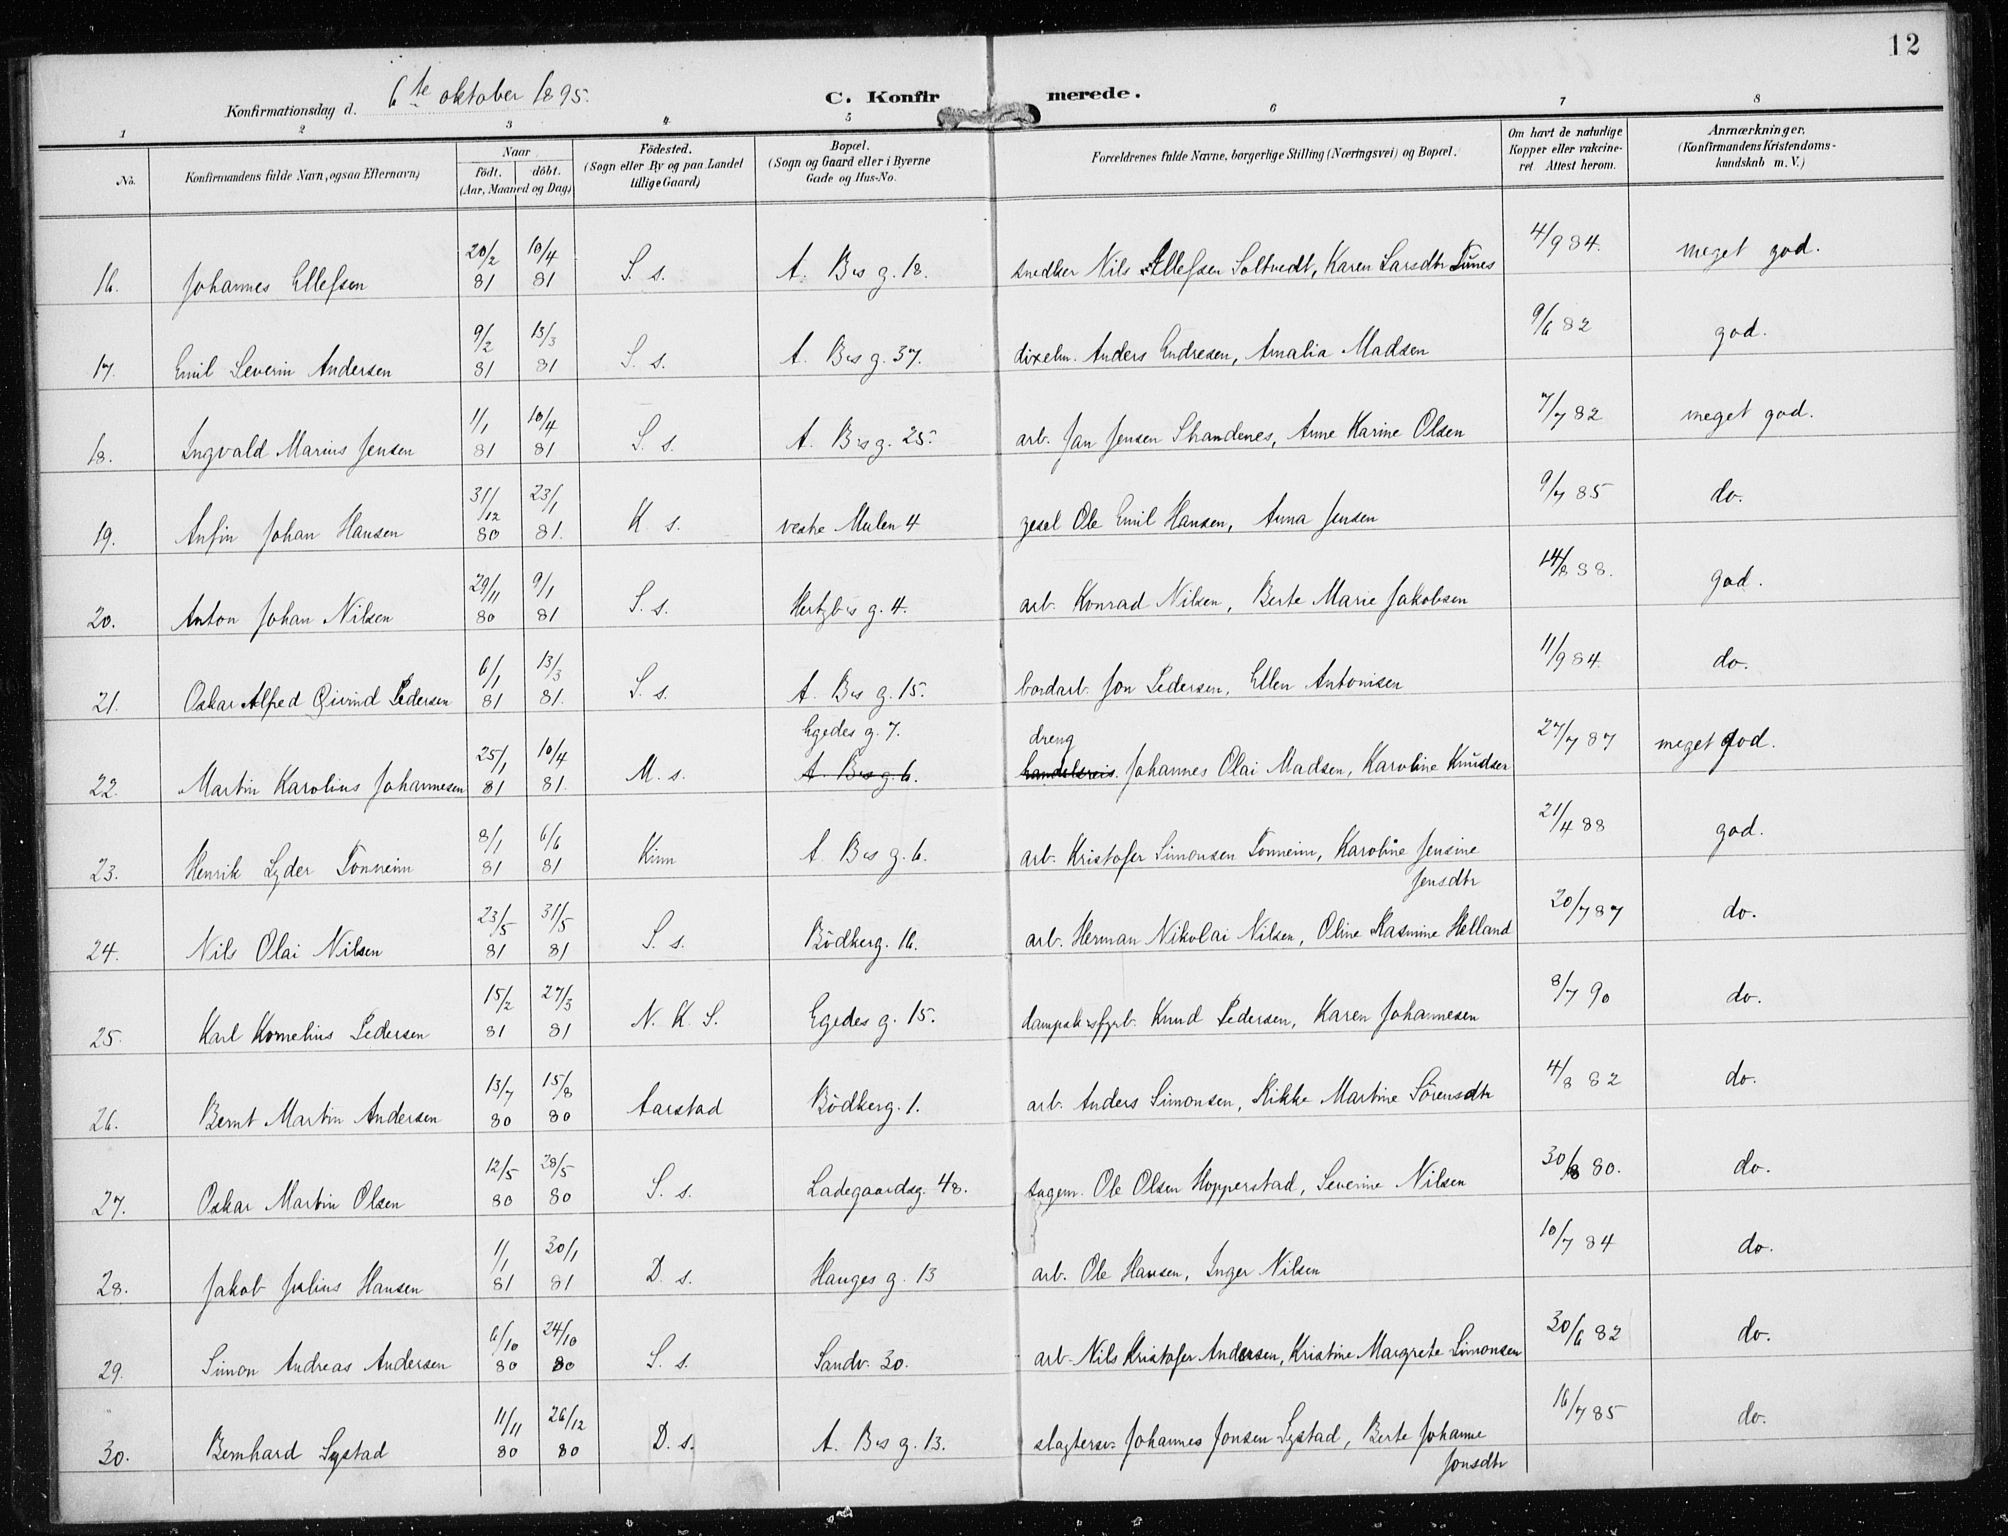 12
Konfirmationsdag d. 6te oktober 1895.
C. Konfirmerede.
1 2 3 4 5 6 7 8
No. Konfirmandens fulde Navn, ogsaa Efternavn) Naar födt. döbt. (Aar, Maaned og Dag) Födested. (Sogn eller By og paa Landet tillige Gaard) Bopæl. (Sogn og Gaard eller i Byerne Gade og Hus-No. Forældrenes fulde Navne, borgerlige Stilling (Næringsvei) og Bopæl. Om havt de naturlige Kopper eller vakcineret Attest herom. Anmærkninger. (Konfirmandens Kristendomskundskab m. V.)
16. Johannes Ellefsen 20/2 81 10/4 81 S. s. A. Bs g. 18. snedker Nils Ellefsen Soltvedt, Karen Larsdtr Tunes 4/9 84. meget god.
17. Emil Severin Andersen 9/2 81 13/3 81 S. s. A. Bs g. 37. dixelm. Anders Endresen, Amalia Madsen 9/6 82 god.
18. Ingvald Marius Jensen 1/1 81 10/4 81 S. s. A. Bs g. 25. arb. Jan Jensen Strandenes, Anne Karine Olsen 7/7 82 meget god.
19. Anfin Johan Hansen 31/12 80 23/1 81. K s. vestre Mulen 4 gesel Ole Emil Hansen, Anna Jensen 9/7 85 do.
20. Anton Johan Nilsen 29/11 80 9/1 81 S. s. Hertzbs g. 4. arb. Konrad Nilsen, Berte Marie Jakobsen 14/8 88. god.
21. Oskar Alfred Qivind Pedersen 6/1 81 13/3 81. S. s. A. Bs g. 15. bordarb. Jon Pedersen, Ellen Antonisen 11/9 84. do.
Egedes g. 7. dreng
22. Martin Karolius Johannesen 25/1 81 10/4 81. M. s. A. Bs g. 6. handelsreis. Johannes Olai Madsen, Karoline Knudsen 27/7 87 meget god.
23. Henrik Lyder Tonneim 8/1 81 6/6 81 Kinn A. Bs g. 6. arb. Kristofer Simonsen Tonneim, Karoline Jensine 21/4 88 god.
Jensdtr
24. Nils Olai Nilsen 23/5 81 31/5 81 S. s. Bödkerg. 16. arb. Herman Nikolai Nilsen, Oline Rasmine Helland 20/7 87 do.
25. Karl Kornelius Pedersen 15/2 81 27/3 81 N. K. S. Egedes g. 15. dampskibsfyrb. Knud Pedersen, Karen Johannesen 8/7 90 do.
26. Bernt Martin Andersen 13/7 80 15/8 80 Aarstad Bödkerg. 1. arb. Anders Simonsen, Rikke Martine Sörensdtr 4/8 82 do.
27. Oskar Martin Olsen 12/5 80 28/5 80 S. s. Ladegaardsg. 48. sagem. Ole Olsen Hopperstad, Severine Nilsen 30/8 80. do.
28. Jakob Julius Hansen 1/1 81 30/1 81 D. s. Hauges g. 13 arb. Ole Hansen, Inger Nilsen 10/7 84 do.
29. Simon Andreas Andersen 6/10 80 24/10 80 S. s. Sandv. 30. arb. Nils Kristofer Andersen, Kristine Margrete Simonsen 30/6 82 do.
30. Bernhard Systad 11/11 80 26/12 80 D. s. A. Bs g. 13. slagtersv. Johannes Jonsen Systad, Berte Johanne 16/7 85 do.
Jonsdtr